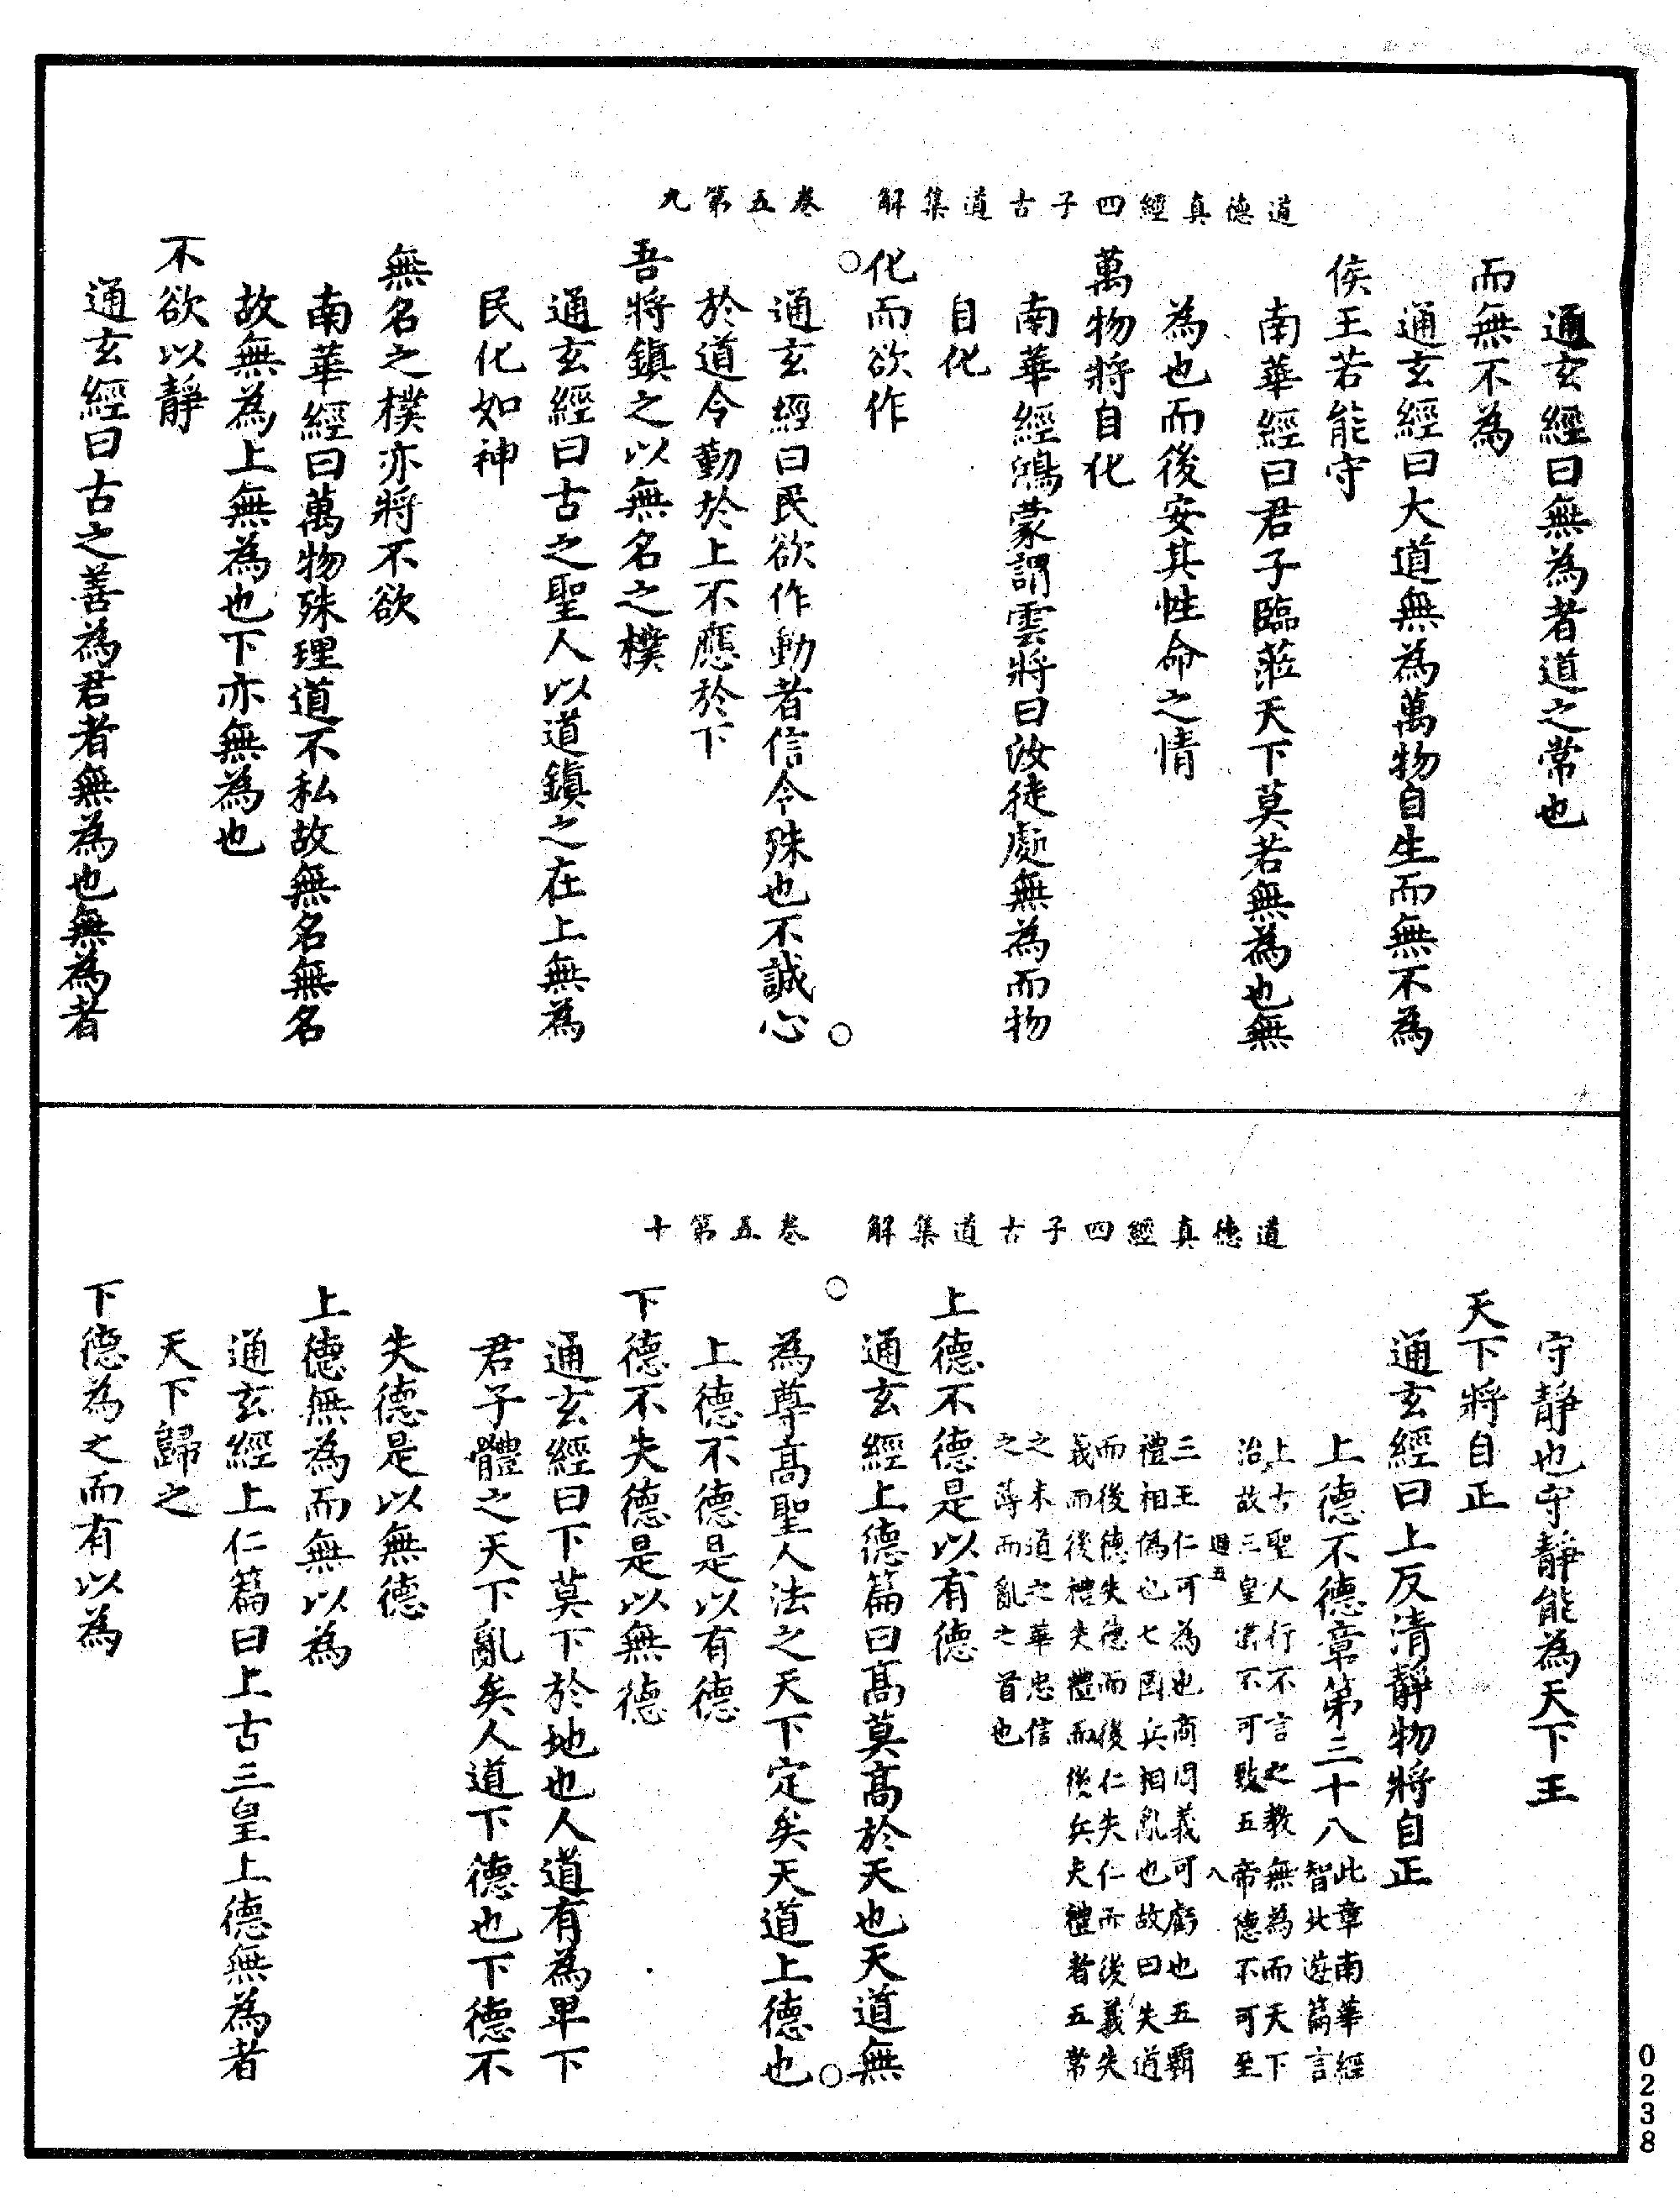 道德真經四子古道集解　卷五第九
通玄經曰無為者道之常也
而無不為
通玄經曰大道無為萬物自生而無不為
侯王若能守
南華經曰君子臨蒞天下莫若無為也無
為也而後安其性命之情
萬物將自化
南華經鴻蒙謂雲將曰汝徒處無為而物
自化
化而欲作
通玄經曰民欲作動者信令殊也不誠心
於道令勤於上不應於下
吾將鎮之以無名之樸
通玄經曰古之聖人以道鎮之在上無為
民化如神
無名之樸亦將不欲
南華經曰萬物殊理道不私故無名無名
故無為上無為也下亦無為也
不欲以靜
通玄經曰古之善為君者無為也無為者
道德真經四子古道集解　卷五第十
守靜也守靜能為天下王
天下將自正
通玄經曰上反清靜物將自正
上德不德章第三十八
此章南華經
智北遊篇言
上古聖人行不言之教無為而天下
治故三皇道不可致五帝德不可至
過五
八
三王仁可為也商周義可虧也五霸
禮相偽也七國兵相亂也故曰失道
而後德失德而後仁失仁而後義失
義而後禮失禮而後兵夫禮者五常
之末道之華忠信
之薄而亂之首也
上德不德是以有德
通玄經上德篇曰高莫高於天也天道無
為尊高聖人法之天下定矣天道上德也
上德不德是以有德
下德不失德是以無德
通玄經曰下莫下於地也人道有為卑下
君子體之天下亂矣人道下德也下德不
失德是以無德
上德無為而無以為
通玄經上仁篇曰上古三皇上德無為者
天下歸之
下德為之而有以為
0238